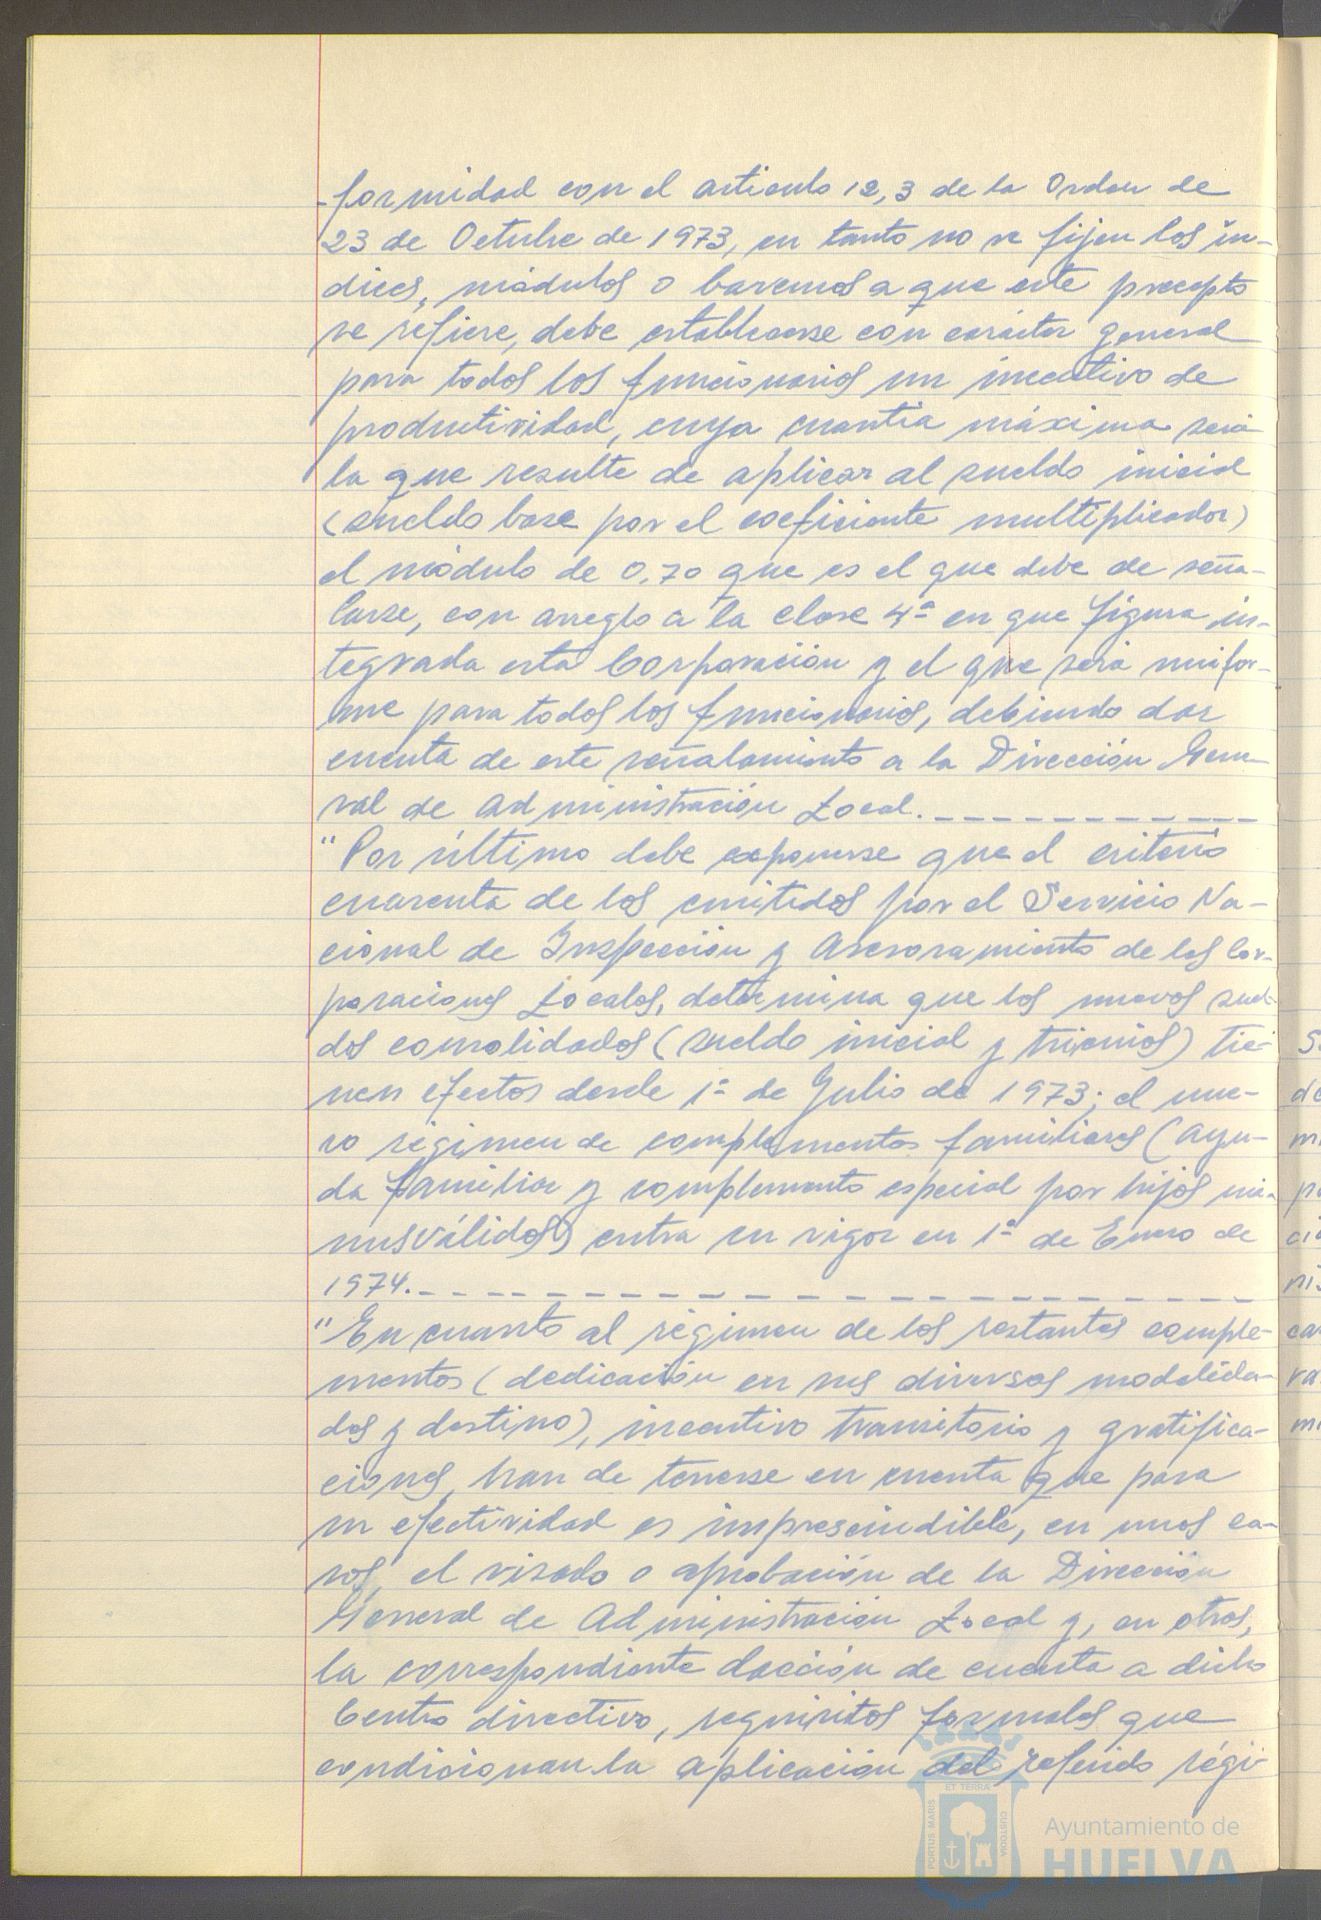 -formidad con el artículo 12,3 de la Orden de
23 de Octubre de 1973, en tanto no se fijen los ín-
dices, módulos o baremos a que este precepto
se refiere, debe establecerse con carácter general
para todos los funcionarios un incentivo de
productividad, cuya cuantía máxima será
la que resulte de aplicar al sueldo inicial
(sueldo base por el coeficiente multiplicador)
el módulo de 0,70 que es el que debe de seña-
larse, con arreglo a la clase 4ª en que figura in-
tegrada esta Corporación y el que será unifor-
me para todos los funcionarios, debiendo dar
cuenta de este señalamiento a la Dirección Gene-
ral de Administración Local.
"Por último debe exponerse que el criterio
cuarenta de los emitidos por el Servicio Na-
cional de Inspección y Asesoramiento de las Cor-
poraciones Locales, determina que los nuevos suel-
dos consolidados (sueldo inicial y trienios) tie-
nen efectos desde 1º de Julio de 1973; el nue-
vo régimen de complementos familiares (ayu-
da familiar y complemento especial por hijos mi-
nusválidos) entra en vigor en 1º de Enero de
1974.
"En cuanto al régimen de los restantes comple-
mentos (dedicación en sus diversas modalida-
des y destino), incentivo transitorio y gratifica-
ciones, han de tenerse en cuenta que para
su efectividad es imprescindible, en unos ca-
sos, el visado o aprobación de la Dirección
General de Administración Local y, en otros,
la correspondiente dacción de cuenta a dicho
Centro directivo, requisitos formales que
condicionan la aplicación del referido régi-
ET TERRAE
PORTUS MARIS
CUSTODIA
Ayuntamiento de
HUELVA